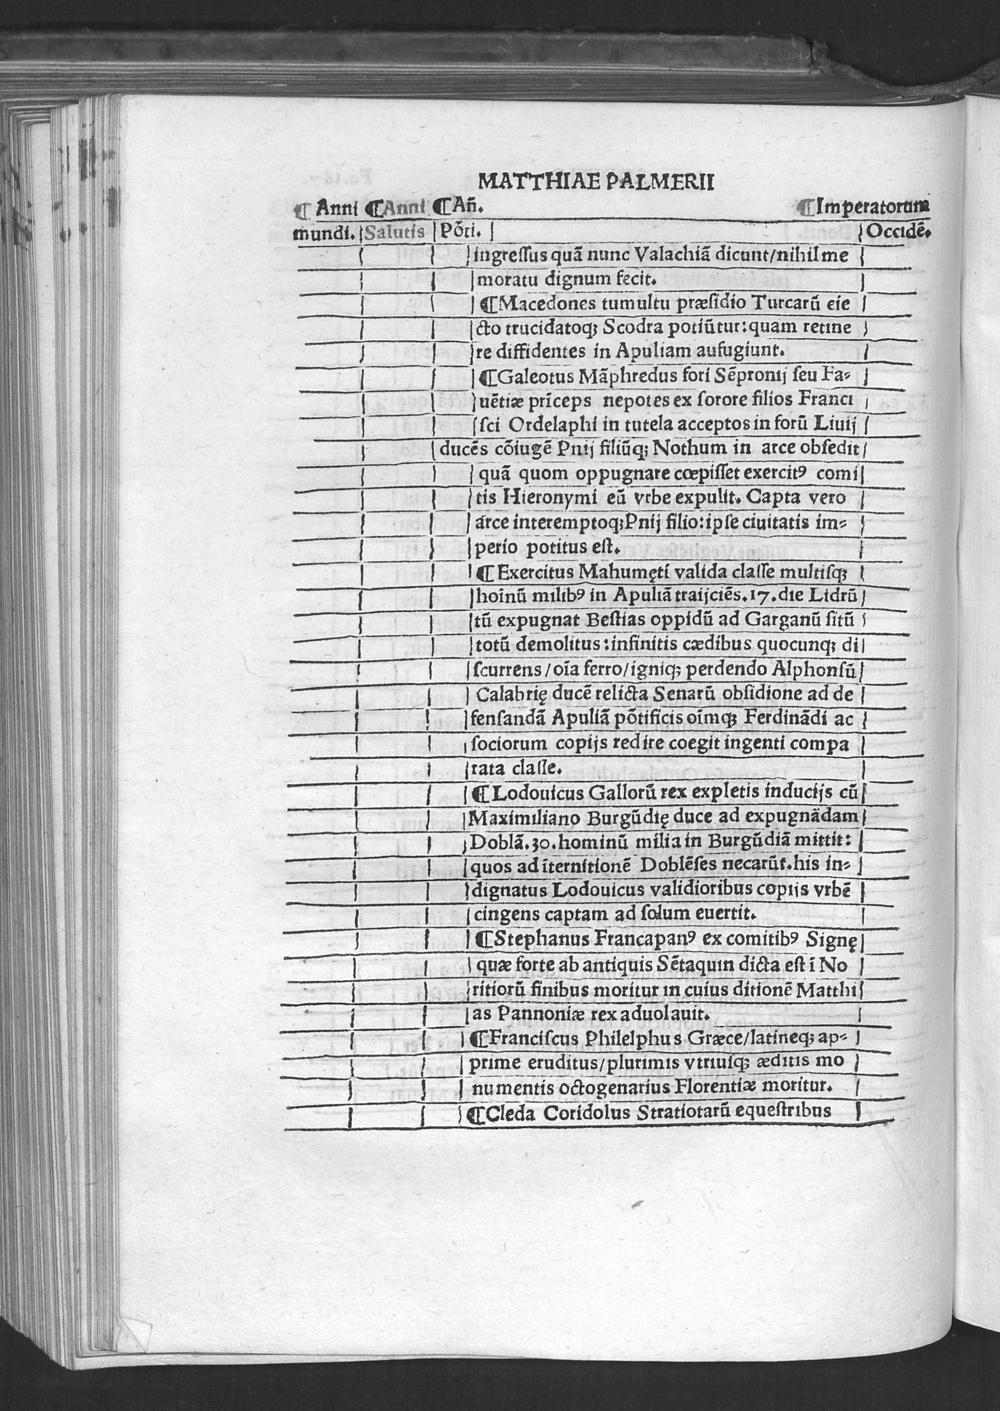 MATTHIAE PALMERII
¶ Anni ¶Anni ¶Añ. ¶Imperatorum
mundi. Salutis Põti. Occidẽ.
ingreſſus quã nunc Valachiã dicunt/nihil me
moratu dignum fecit.
¶Macedones tumultu præſidio Turcarũ eie
cto trucidatoq; Scodra potiũtur: quam retine
re diffidentes in Apuliam aufugiunt.
¶Galeotus Mãphredus fori Sẽpronij ſeu Fa-
uẽtiæ prĩceps nepotes ex ſorore filios Franci
ſci Ordelaphi in tutela acceptos in forũ Liuij
ducẽs cõiugẽ Pnij filiũq; Nothum in arce obſedit
quã quom oppugnare cœpiſſet exercitꝰ comi
tis Hieronymi eũ vrbe expulit. Capta vero
arce interemptoq; Pnij filio: ipſe ciuitatis im-
perio potitus eſt.
¶Exercitus Mahumęti valida claſſe multiſq;
hoĩnũ milibꝰ in Apuliã traijciẽs. 17. die Lidrũ
tũ expugnat Beſtias oppidũ ad Garganũ ſitũ
totũ demolitus: infinitis cædibus quocunq; di
ſcurrens/oĩa ferro/igniq; perdendo Alphonſũ
Calabrię ducẽ relicta Senarũ obſidione ad de
fenſandã Apuliã põtificis oĩmq; Ferdinãdi ac
ſociorum copijs redire coegit ingenti compa
rata claſſe.
¶Lodouicus Gallorũ rex expletis inducijs cũ
Maximiliano Burgũdię duce ad expugnãdam
Doblã. 30. hominũ milia in Burgũdiã mittit:
quos ad ĩternitionẽ Doblẽſes necarũt. his in-
dignatus Lodouicus validioribus copijs vrbẽ
cingens captam ad ſolum euertit.
¶Stephanus Francapanꝰ ex comitibꝰ Signę
quæ forte ab antiquis Sẽtaquin dicta eſt ĩ No
ritiorũ finibus moritur in cuius ditionẽ Matthi
as Pannoniæ rex aduolauit.
¶Franciſcus Philelphus Græce/latineq; ap-
prime eruditus/plurimis vtriuſq; æditis mo
numentis octogenarius Florentiæ moritur.
¶Cleda Coridolus Stratiotarũ equeſtribus